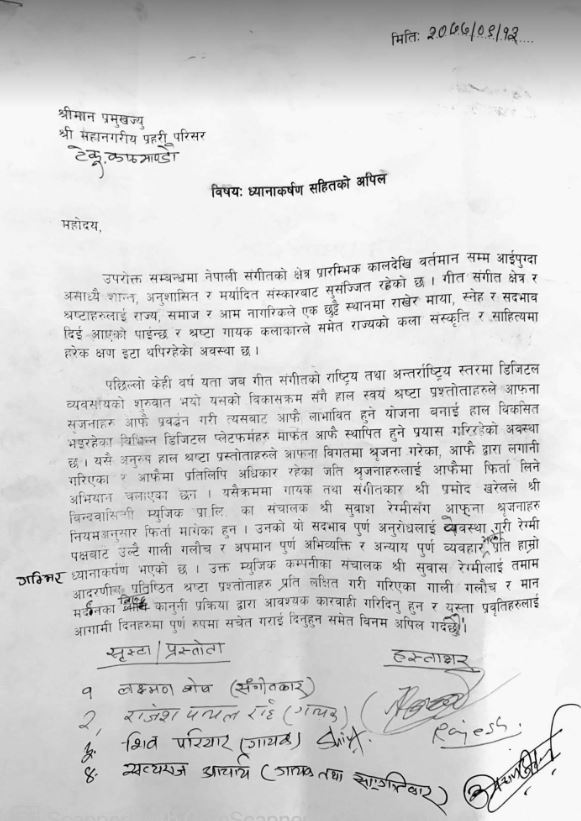 मिति: २०७७/०९/१२
श्रीमान प्रमुखज्यु
श्री महानगरीय प्रहरी परिसर
टेकु, काठमाण्डौ
विषय: ध्यानाकर्षण सहितको अपिल
महोदय,
उपरोक्त सम्बन्धमा नेपाली संगीतको क्षेत्र प्रारम्भिक कालदेखि वर्तमान सम्म आईपुग्दा
असाध्यै शान्त, अनुशासित र मर्यादित संस्कारबाट सुसज्जित रहेको छ । गीत संगीत क्षेत्र र
श्रष्टाहरुलाई राज्य, समाज र आम नागरिकले एक छुट्टै स्थानमा राखेर माया, स्नेह र सदभाव
दिई आएको पाईन्छ र श्रष्टा गायक कलाकारले समेत राज्यको कला संस्कृति र साहित्यमा
हरेक क्षण इटा थपिरहेको अवस्था छ ।
पछिल्लो केही वर्ष यता जब गीत संगीतको राष्ट्रिय तथा अन्तर्राष्ट्रिय स्तरमा डिजिटल
व्यवसायको शुरुवात भयो यसको विकासक्रम संगै हाल स्वयं श्रष्टा प्रस्तोताहरुले आफना
सृजनाहरु आफै प्रवर्द्धन गरी त्यसबाट आफै लाभावित हुने योजना बनाई हाल विकसित
भइरहेका विभिन्न डिजिटल प्लेटफर्महरु मार्फत आफै स्थापित हुने प्रयास गरिरहेको अवस्था
छ । यसै अनुरुप हाल श्रष्टा प्रस्तोताहरुले आफना विगतमा श्रृजना गरेका, आफै द्वारा लगानी
गरिएका र आफैमा प्रतिलिपि अधिकार रहेका जति श्रृजनाहरुलाई आफैमा फिर्ता लिने
अभियान चलाएका छन । यसैक्रममा गायक तथा संगीतकार श्री प्रमोद खरेलले श्री
बिन्दवासिनी म्युजिक प्रा.लि. का संचालक श्री सुवाश रेग्मीसंग आफना श्रृजनाहरु
नियमअनुसार फिर्ता मागेका हुन । उनको यो सदभाव पुर्ण अनुरोधलाई वेवस्था गरी रेग्मी
पक्षबाट उल्टै गाली गलौच र अपमान पुर्ण अभिव्यक्ति र अन्याय पुर्ण व्यवहार प्रति हाम्रो
गम्भिर ध्यानाकर्षण भएको छ । उक्त म्युजिक कम्पनीका संचालक श्री सुवास रेग्मीलाई तमाम
आदरणीय प्रतिष्ठित श्रष्टा प्रस्तोताहरु प्रति लक्षित गरी गरिएका गाली गलौच र मान
मर्दनका कानुनी प्रक्रिया द्वारा आवश्यक कारवाही गरिदिनु हुन र यस्ता प्रवृतिहरुलाई
आगामी दिनहरुमा पुर्ण रुपमा सचेत गराई दिनुहुन समेत विनम अपिल गर्दछौ।
सृस्टा/प्रस्तोता हस्ताक्षर
१ लक्ष्मण शेष (संगीतकार)
२, राजेश पायल राई (गायक) Rajesh
३. शिव परियार (गायक)
४. सत्यराज आचार्य (गायक तथा सङ्गीतकार)